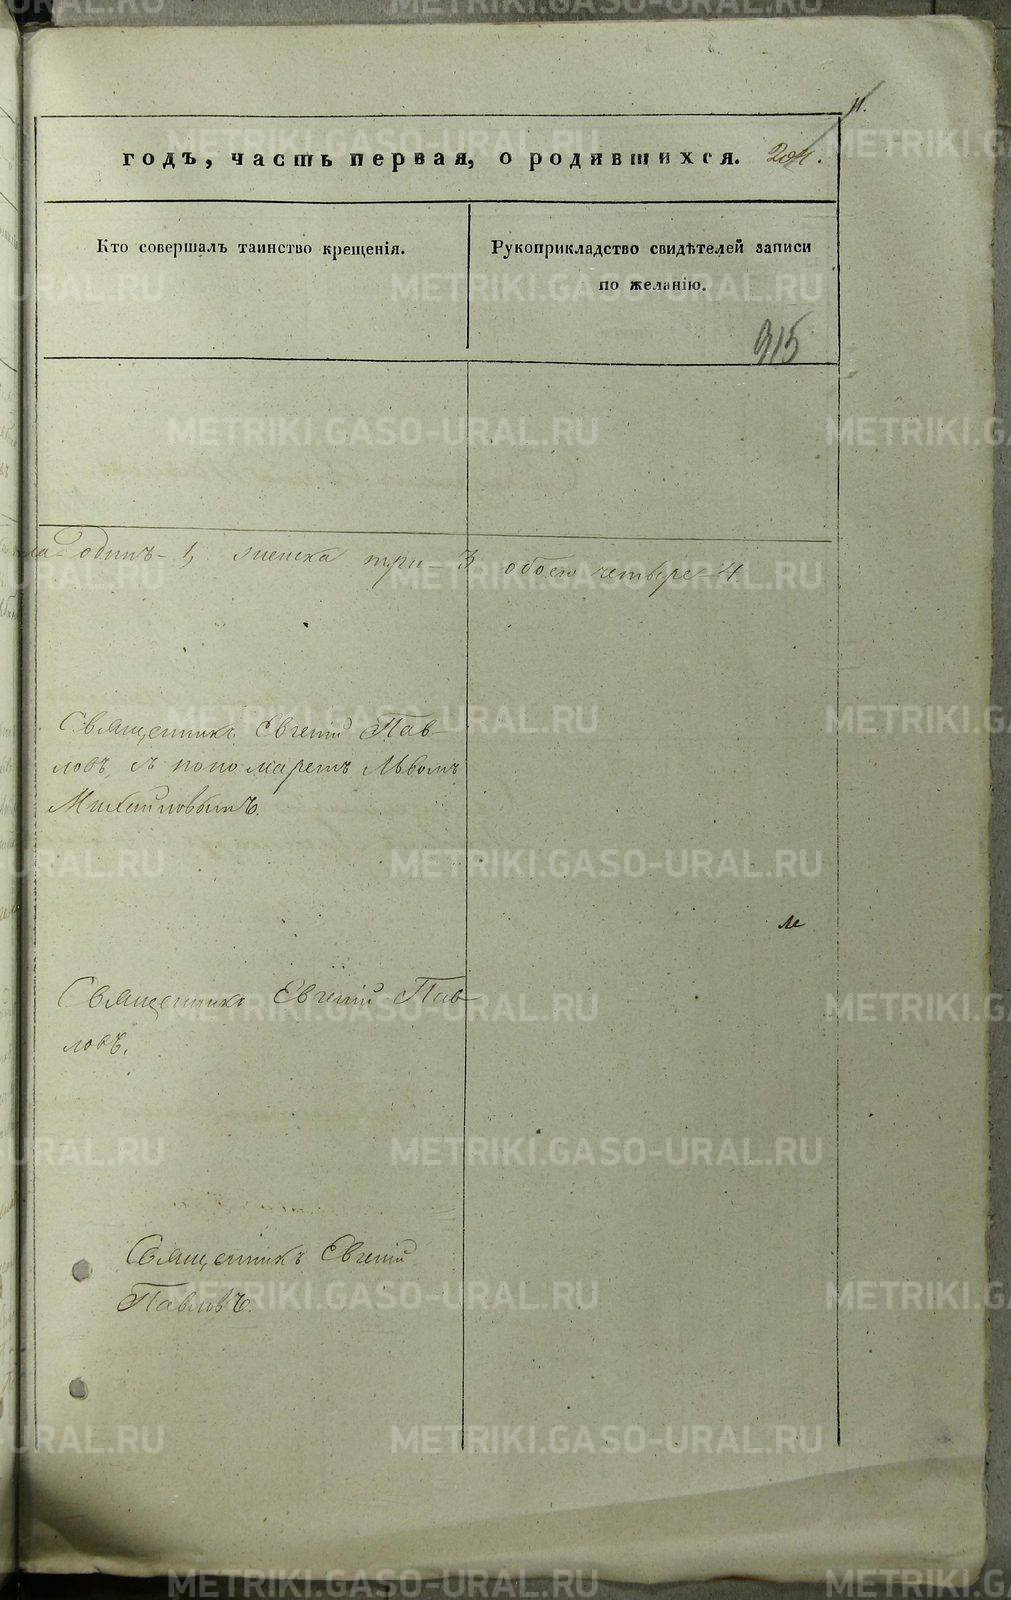 11.
годъ, часть первая, о родившихся.
Кто совершалъ таинство крещенія.
Рукоприкладство свидѣтелей записи
по желанію.
915
одинъ - 1, женска три - 3 обоего четверо - 4.
Священникъ Евгеній Пав-
ловъ, съ пономаремъ Львомъ
Михайловымъ.
Священникъ Евгеній Пав-
ловъ.
Священникъ Евгеній
Павловъ.
METRIKI.GASO-URAL.RU